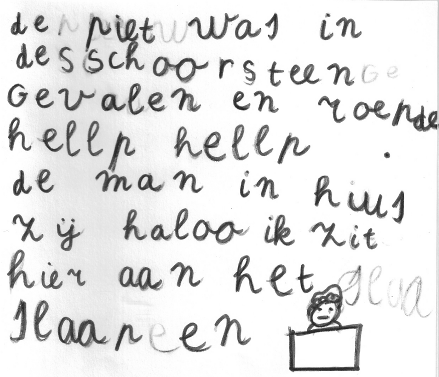 de piet was in
desschoorsteen
gevalen en roepde
hellp hellp .
de man in hius
zij haloo ik zit
hier aan het
slaapeen